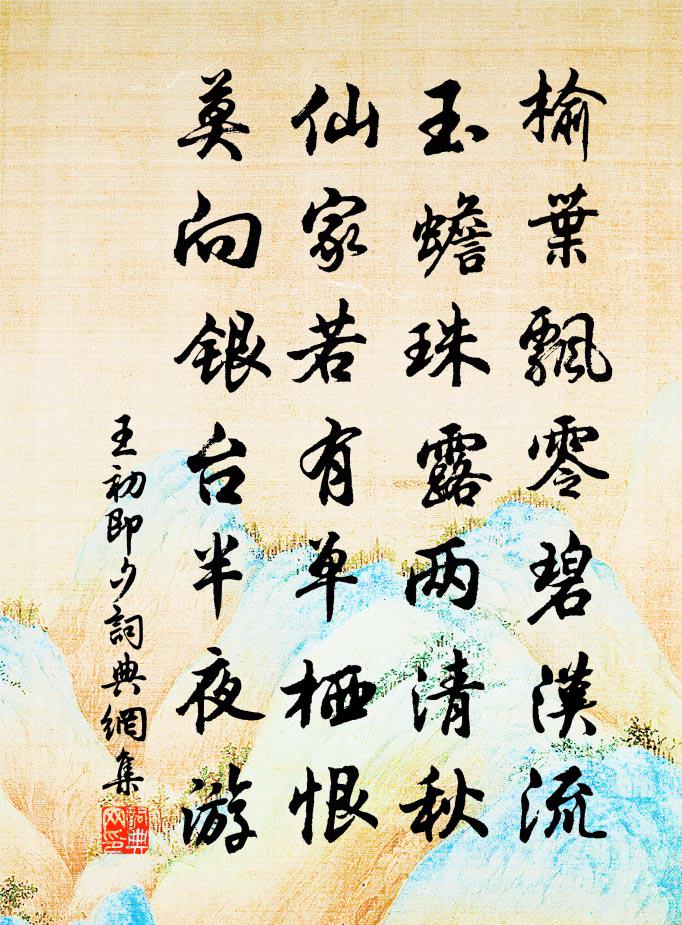 榆葉飄零碧漢流
玉蟾珠露两清秋
仙家若有单栖恨
莫向銀台半夜游
王初即夕詞典網集
詞典網印